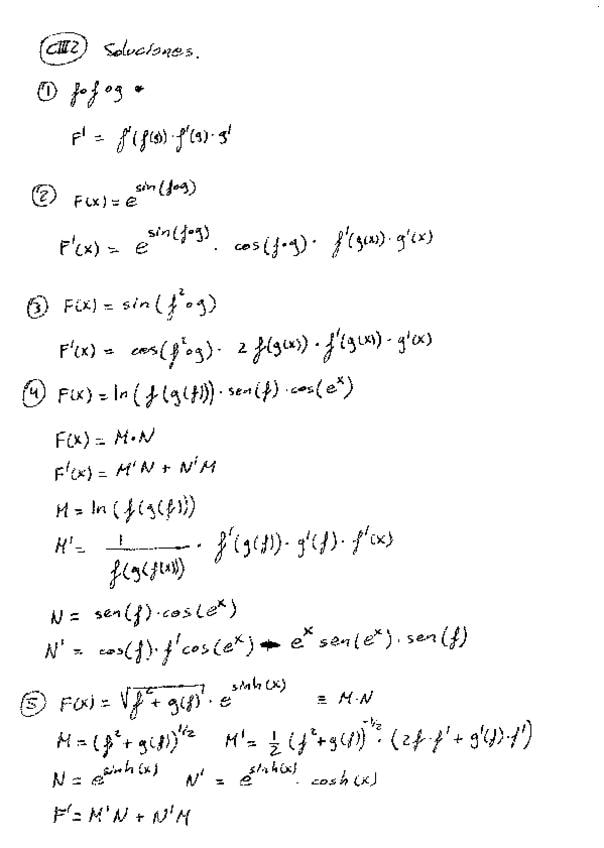 CIII2 Soluciones.
① f∘f∘g
F' = f'(f(g))·f'(g)·g'
② F(x) = e^sin(f∘g)
F'(x) = e^sin(f∘g) · cos(f∘g) · f'(g(x))·g'(x)
③ F(x) = sin(f²∘g)
F'(x) = cos(f²∘g)· 2 f(g(x))·f'(g(x))·g'(x)
④ F(x) = ln(f(g(f)))·sen(f)·cos(e^x)
F(x) = M·N
F'(x) = M'N + N'M
M = ln(f(g(f)))
M' = 1/f(g(f(x))) · f'(g(f))·g'(f)·f'(x)
N = sen(f)·cos(e^x)
N' = cos(f)·f'cos(e^x) - e^x sen(e^x)·sen(f)
⑤ F(x) = √(f² + g(f)) · e^sinh(x) ≡ M·N
M = (f² + g(f))^1/2 M' = 1/2 (f²+g(f))^-1/2 · (2f·f' + g'(f)·f')
N = e^sinh(x) N' = e^sinh(x) · cosh(x)
F' = M'N + N'M